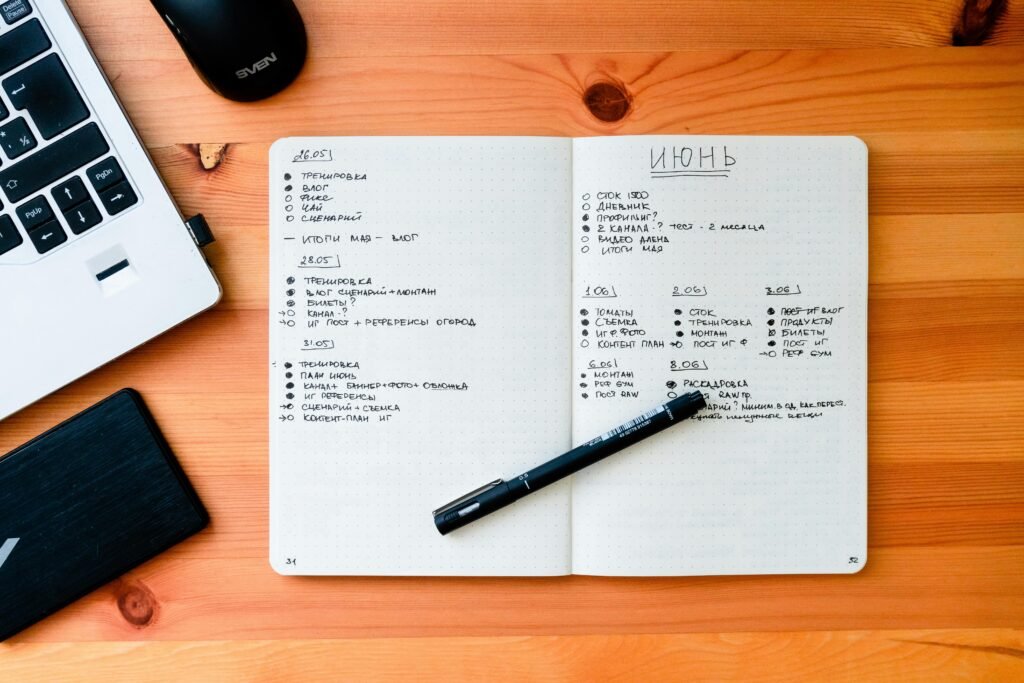 Delete
Pause
PgDn
PgUp
SVEN
26.05
● ТРЕНИРОВКА
● ВЛОГ
○ ФИКС
○ ЧАЙ
○ СЦЕНАРИЙ
— ИТОГИ МАЯ — ВЛОГ
28.05
● ТРЕНИРОВКА
● ВЛОГ СЦЕНАРИЙ+МОНТАЖ
● БИЛЕТЫ?
→○ КАНАЛ-?
→○ ИГ ПОСТ + РЕФЕРЕНСЫ ОГОРОД
31.05
● ТРЕНИРОВКА
● ПЛАН ИЮНЬ
● КАНАЛ+ БАННЕР+ФОТО+ОБЛОЖКА
● ИГ РЕФЕРЕНСЫ
→○ СЦЕНАРИЙ+СЪЕМКА
→○ КОНТЕНТ-ПЛАН ИГ
31
ИЮНЬ
○ СТОК 1500
○ ДНЕВНИК
● ПРОФИЛИНГ?
● 2 КАНАЛА-? ТЕСТ - 2 МЕСЯЦА
○ ВИДЕО АЛЕНА
○ ИТОГИ МАЯ
1.06
● ТОМАТЫ
● СЪЕМКА
● ИГ Ф ФОТО
○ КОНТЕНТ ПЛАН
2.06
● СТОК
● ТРЕНИРОВКА
● МОНТАЖ
→○ ПОСТ ИГ Ф
3.06
● ПОСТ ИГ ВЛОГ
● ПРОДУКТЫ
БИЛЕТЫ
● ПОСТ ИГ
→○ РЕФ GYM
6.06
● МОНТАЖ
● РЕФ GYM
● ПОСТ RAW
8.06
● РАСКАДРОВКА
○ ПОСТ RAW ПР.
МИНИМ. В ОД. КАК ПЕРЕСТ.
НЕНУЖНЫЕ ВЕЩИ
0.5
52